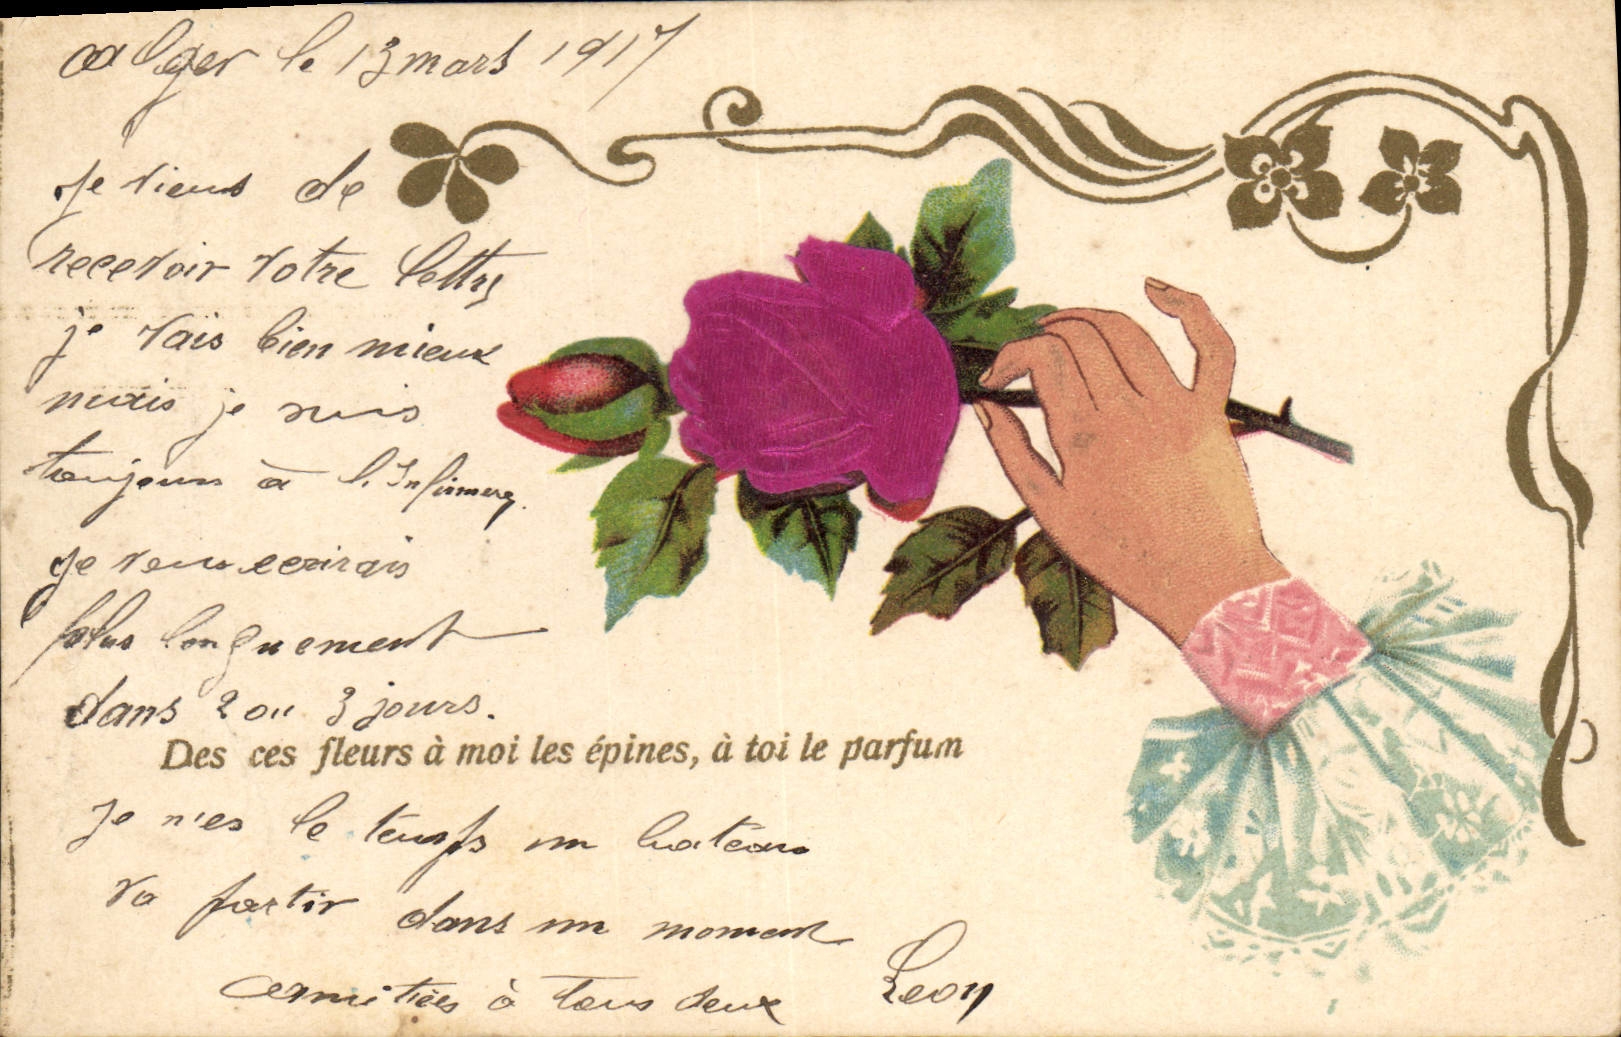 alger le 13 mars 1917
Je viens de
recevoir votre lettre
je vais bien mieux
mais je suis
toujours à l'Infirmerie.
Je vous ecrirais
plus longuement
dans 2 ou 3 jours.
Des ces fleurs à moi les épines, à toi le parfum
Je n'es le temps un bateau
va partir dans un moment
amitiées à tous deux Leon